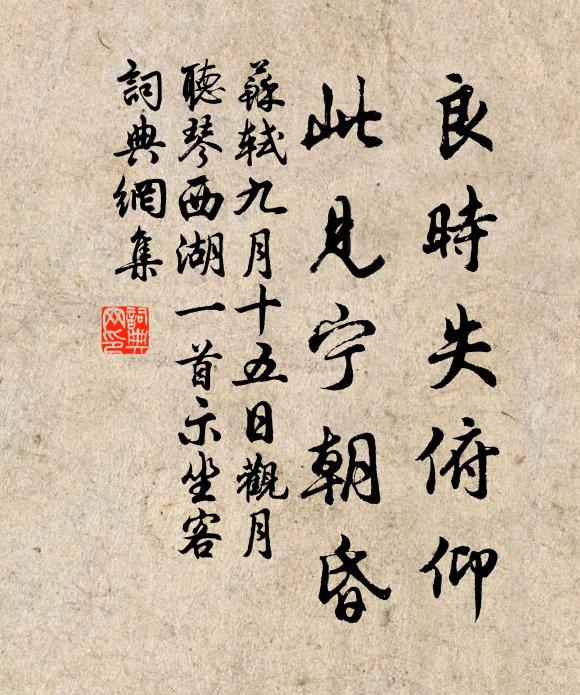 良時失俯仰
此見宁朝昏
蘇軾九月十五日觀月
聽琴西湖一首示坐客
詞典網集
詞典
网印